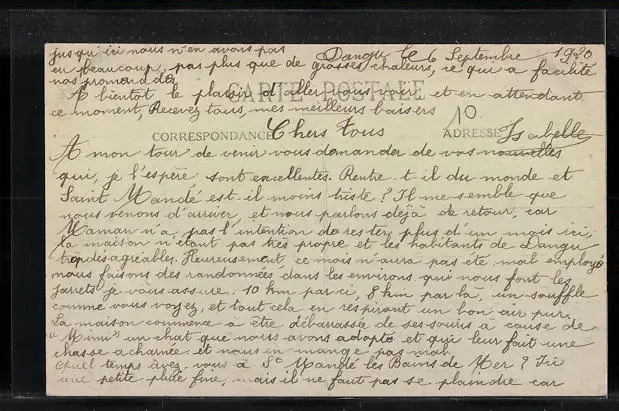 jusqu'ici nous n'en avons pas
Dangu le 6 Septembre 1920
eu beaucoup, pas plus que de grosses chaleurs, ce qui a facilité
nos promenades.
A bientôt le plaisir d'aller vous voir et en attendant
CARTE POSTALE
ce moment, Recevez tous, mes meilleurs baisers
10
CORRESPONDANCE
Chers Tous
ADRESSE
Isabelle
A mon tour de venir vous demander de vos nouvelles
qui, je l'espère sont excellentes. Rentre-t-il du monde et
Saint Mandé est-il moins triste? Il me semble que
nous venons d'arriver, et nous parlons déjà de retour, car
Maman n'a pas l'intention de rester plus d'un mois ici,
la maison n'étant pas très propre et les habitants de Dangu
trop désagréables. Heureusement ce mois n'aura pas été mal employé
nous faisons des randonnées dans les environs qui nous font les
jarrets je vous assure: 10 km par-ci, 8 km par là, un souffle
comme vous voyez, et tout cela en respirant un bon air pur.
La maison commence à être débarrassée de ses souris à cause de
"Mimi" un chat que nous avons adopté et qui leur fait une
chasse acharnée et nous en mange pas mal.
Quel temps avez-vous à St Mandé les Bains de Mer? Ici
une petite pluie fine, mais il ne faut pas se plaindre car